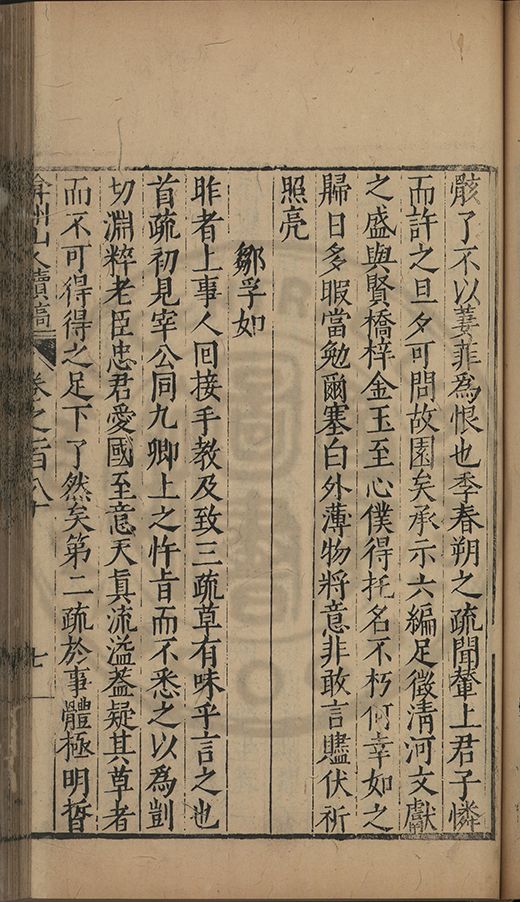 骸了不以萋菲為恨也季春朔之疏聞輦上君子憐
而許之旦夕可問故園矣承示六編足徵清河文獻
之盛與賢橋梓金玉至心僕得托名不朽何幸如之
歸日多暇當勉爾塞白外薄物將意非敢言贐伏祈
照亮
鄒孚如
昨者上事人回接手教及致三疏草有味乎言之也
首疏初見宰公同九卿上之忤旨而不悉之以為剴
切淵粹老臣忠君愛國至意天真流溢蓋疑其草者
而不可得得之足下了然矣第二疏於事體極明晢
弇州山人續稿 卷之一百八十 七